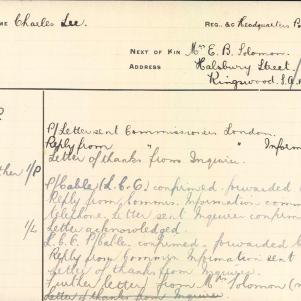 ME Charles Lee.
REG., &C Headquarters
NEXT OF KIN Mrs E. B. Solomon.
ADDRESS Halsbury Street
Kingswood. S.A.
P/Letter sent Commissioner London.
Reply from " " Inform
Letter of thanks from Inquirer.
ther 1/P
P/Cable (L.C.C.) confirmed forwarded
Reply from Commis. Information comm
telephone. Letter sent Inquirer confirm
1/L Letter acknowledged.
P/Cable confirmed. forwarded
Reply from Information sent
Letter of thanks from Inquirer.
Further letter from Mrs Solomon
Letter of thanks from Inquirer.